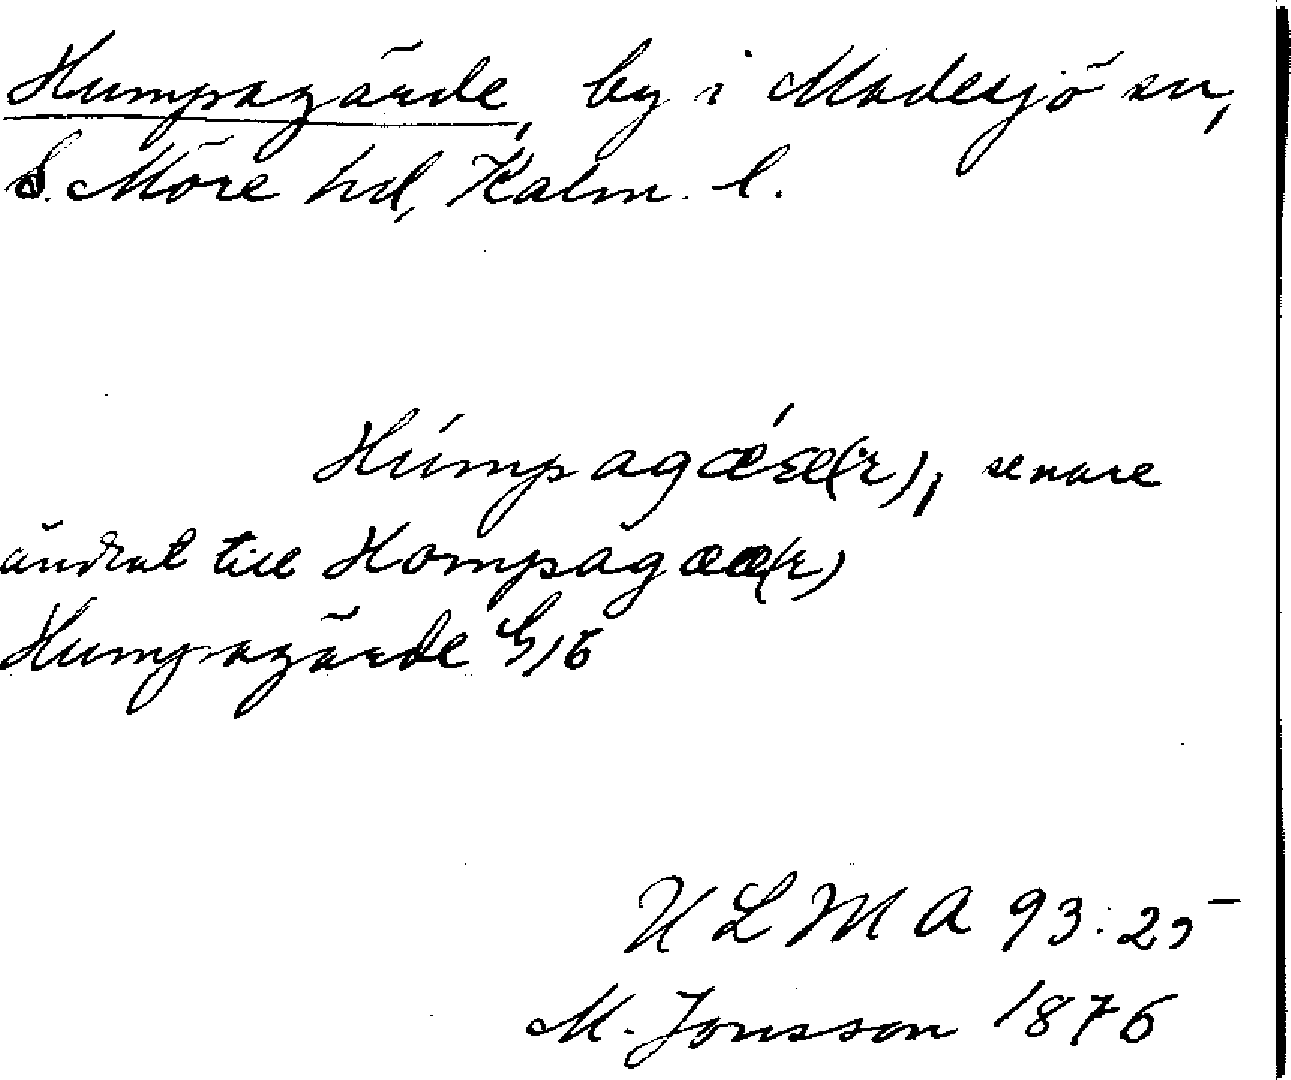 Humpagärde, by i Madesjö sn,
S. Möre hd, Kalm. l.
Húmpagǽræ(r), senare
ändrat till Hompägææ(r)
Humpagärde
ULMA 93:25
M. Jonsson 1876